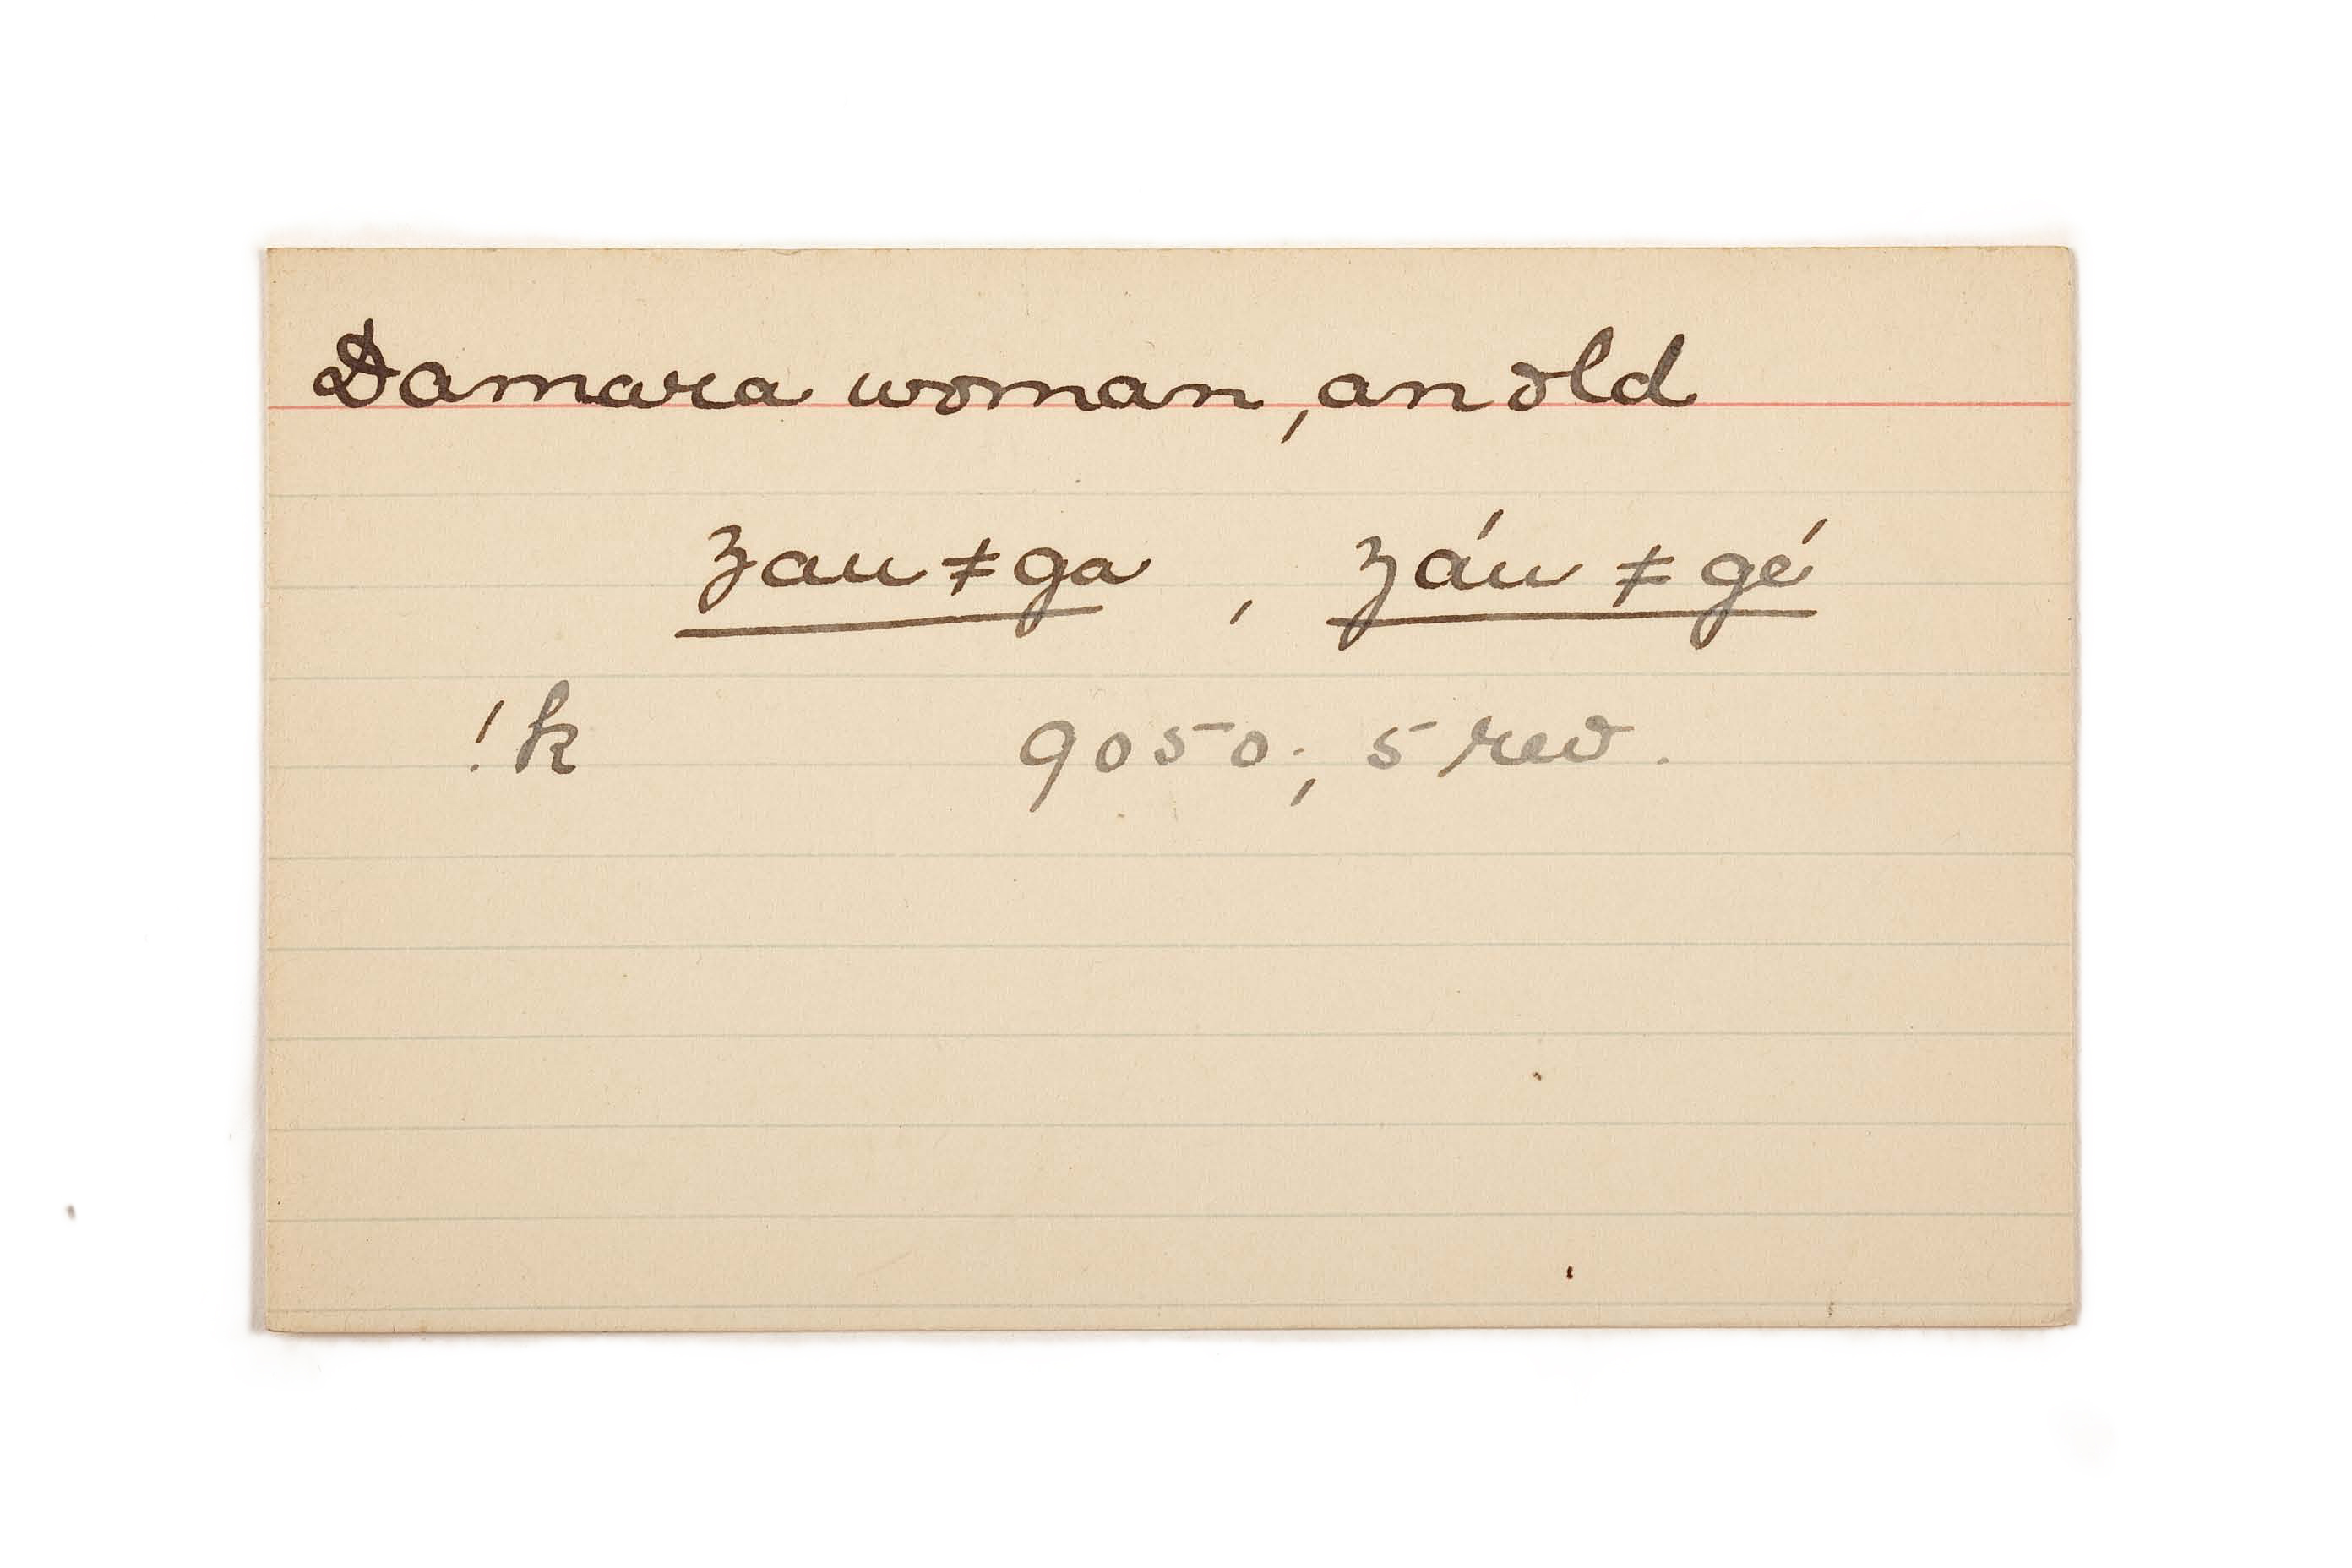 Damara woman, an old
zau ǂ ga , záu ǂ gé
!k 9050; 5 rev.